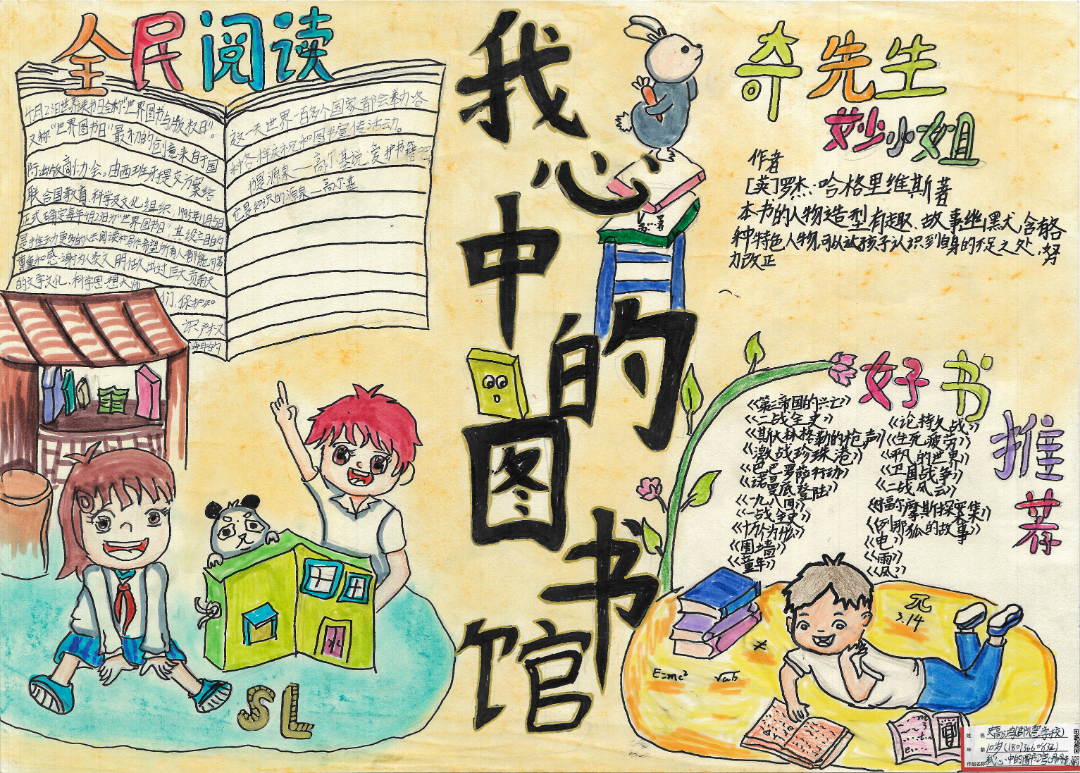 全民阅读
4月23日世界读书日全称"世界图书与版权日"
又称"世界图书日"最初的创意来自于国
际出版商协会，由西班牙提交方案给
联合国教育科学及文化组织，1995年11月15日
正式确定每年4月23日为"世界图书日"其设立目的
是推动更多的人去阅读和写作希望所有人都能
尊重和感谢为人类文明做出过巨大贡献
的文学文化、科学思想大师
们，保护知
识产权
这一天世界一百多个国家都会举办各
种各样庆祝和图书宣传活动。
书爱源泉—高尔基说 爱护书籍
它是知识的源泉—高尔基
我心中的图书馆
的
奇先生
妙小姐
作者
[英]罗杰·哈格里维斯著
本书的人物造型有趣、故事幽默，含有各
种特色人物，可以让孩子认识到自身的不足之处，努
力改正
好书
推荐
《第三帝国的兴亡》
《二战全史》
《斯大林格勒的枪声》
《激战珍珠港》
《巴巴罗萨行动》
《诺曼底登陆》
《一九八四》
《一战全史》
《十万个为什么》
《围城》
《童年》
《论持久战》
《生死疲劳》
《平凡的世界》
《卫国战争》
《二战风云》
《福尔摩斯探案集》
《列那狐的故事》
《电》
《雨》
《风》
SL
π
3.14
≠
E=mc²
√ab
姓名
年龄 10岁
作品名称 我心中的图书馆